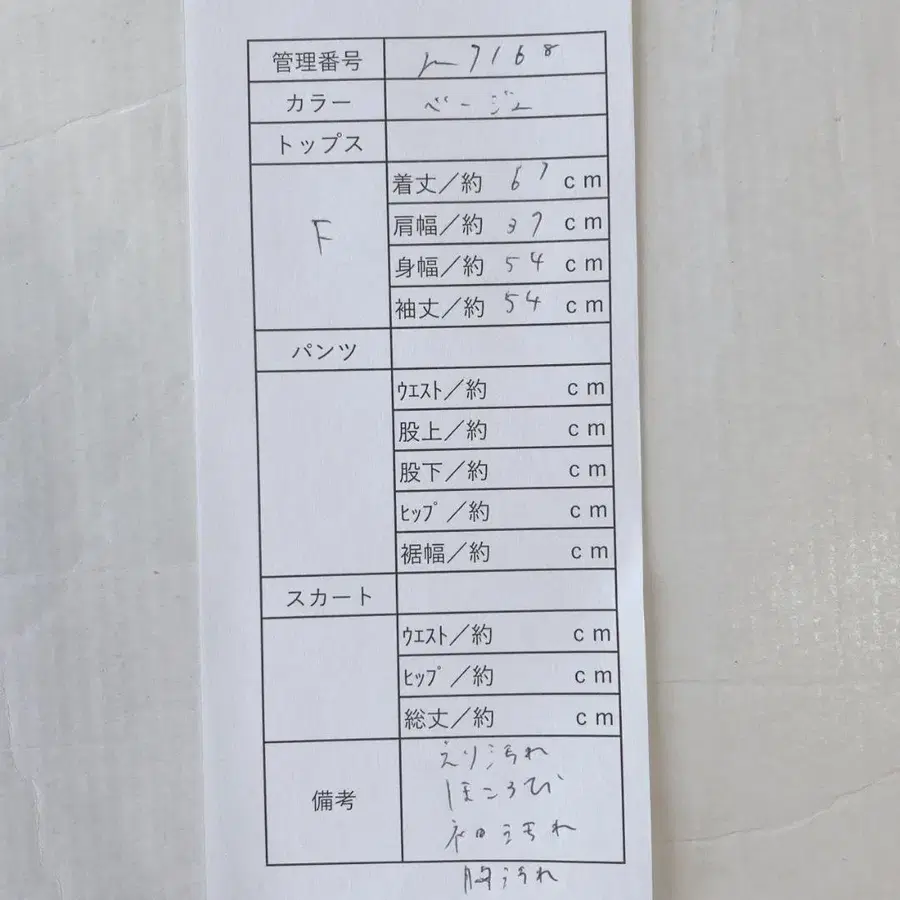 管理番号 m7168
カラー ベージュ
トップス
F
着丈／約 67 cm
肩幅／約 37 cm
身幅／約 54 cm
袖丈／約 54 cm
パンツ
ｳｴｽﾄ／約 cm
股上／約 cm
股下／約 cm
ﾋｯﾌﾟ／約 cm
裾幅／約 cm
スカート
ｳｴｽﾄ／約 cm
ﾋｯﾌﾟ／約 cm
総丈／約 cm
備考
えり汚れ
ほころび
袖口汚れ
胸汚れ